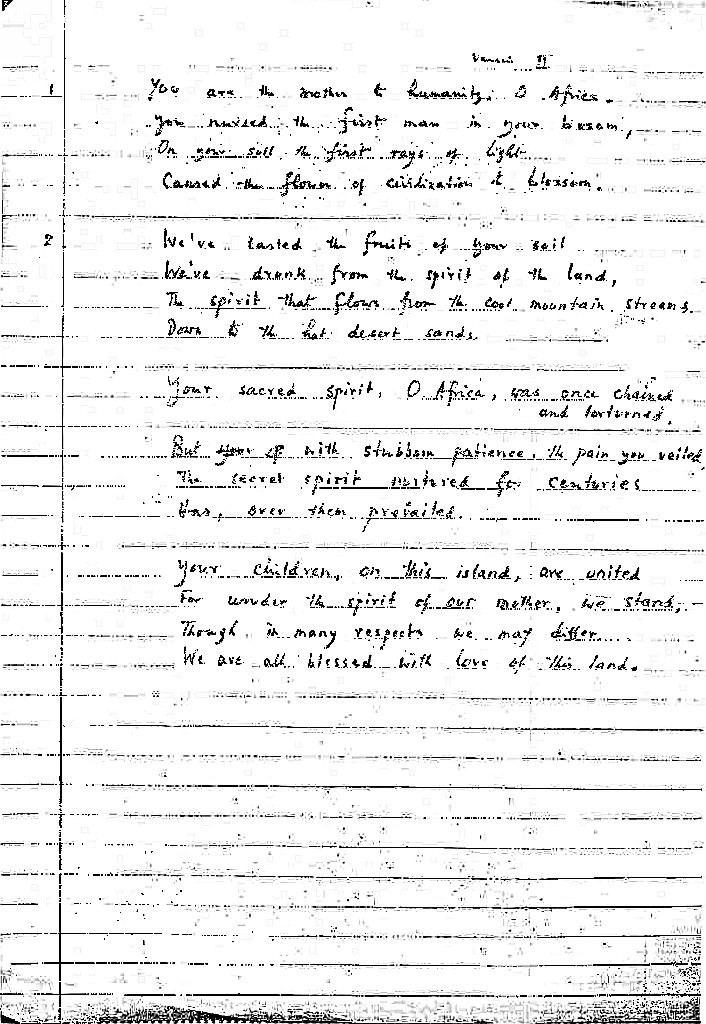 Version II
1 You are the mother to humanity, O Africa.
You nursed the first man in your bosom,
On your soil the first rays of light
Caused the flower of civilization to blossom.
2 We've tasted the fruits of your soil
We've drunk from the spirit of the land,
The spirit that flows from the cool mountain streams
Down to the hot desert sands.
Your sacred spirit, O Africa, was once chained
and tortured,
But your with stubborn patience, the pain you veiled,
The secret spirit nurtured for centuries
Has, over them prevailed.
Your children, on this island, are united
For under the spirit of our mother, we stand, –
Though in many respects we may differ
We are all blessed with love of this land.